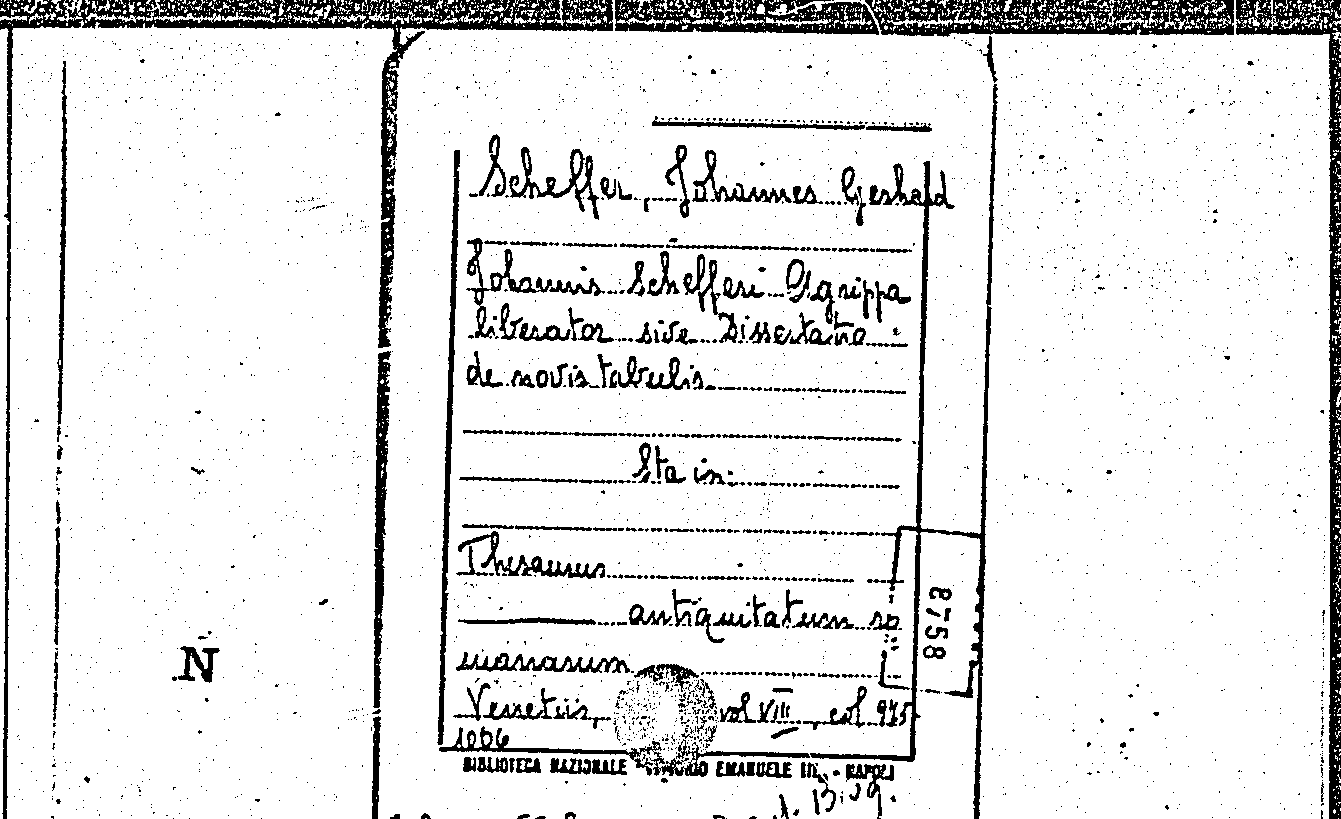 Scheffer, Johannes Gerhard
Johannis Schefferi Agrippa
liberator sive Dissertatio
de novis tabulis.
Sta in:
Thesaurus
antiquitatum ro
manarum
Venetiis, vol VIII, col 975-
1006
8758
N
BIBLIOTECA NAZIONALE VITTORIO EMANUELE III. - NAPOLI